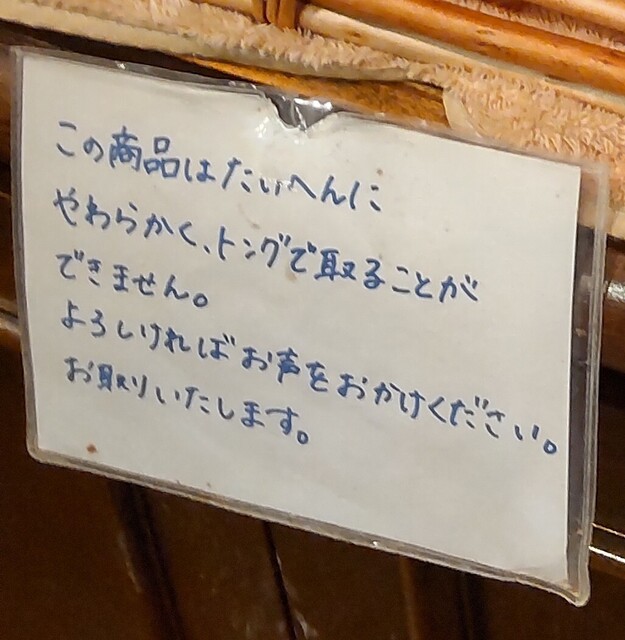 この商品はたいへんに
やわらかく、トングで取ることが
できません。
よろしければお声をおかけください。
お取りいたします。